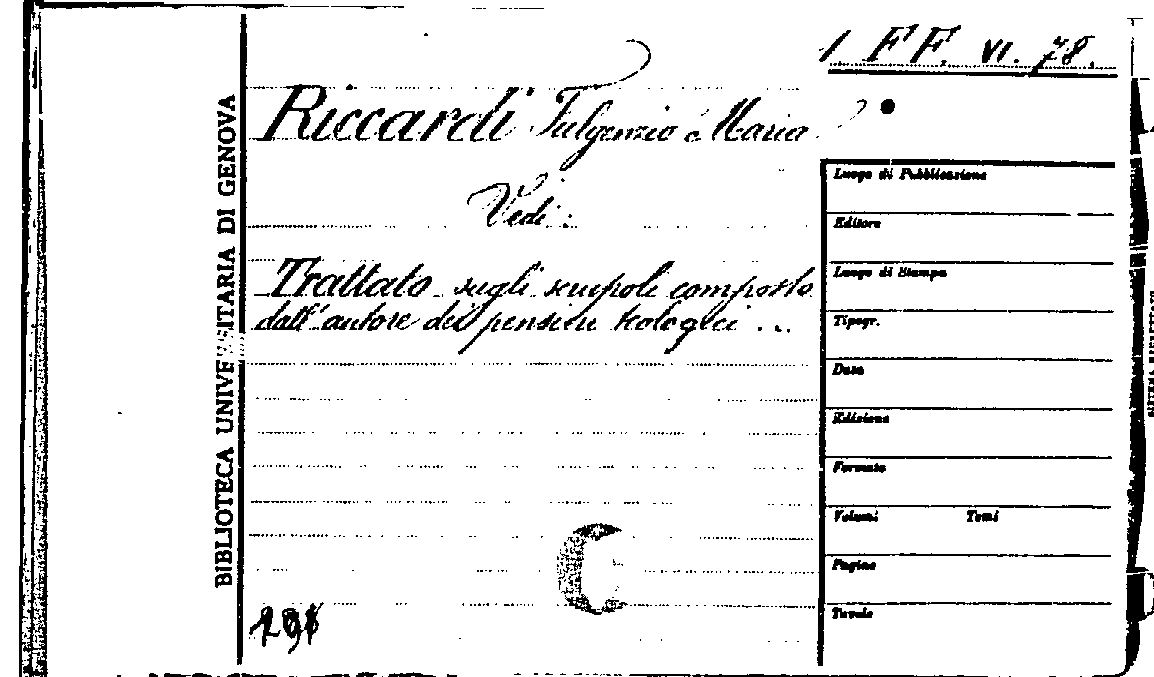 1 FF. VI. 78.
Riccardi Fulgenzio Maria
Vedi:
Trattato sugli scrupoli composto
dall'autore dei pensieri teologici ...
BIBLIOTECA UNIVERSITARIA DI GENOVA
Luogo di Pubblicazione
Editore
Luogo di Stampa
Tipogr.
Data
Edizione
Formato
Volumi Tomi
Pagine
Tavole